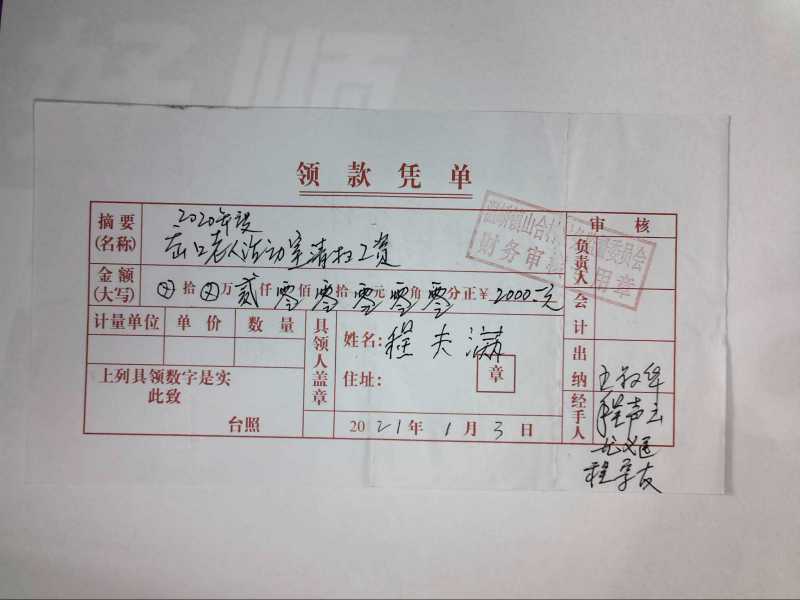 领款凭单
摘要
(名称)
2020年度
岙口老人活动室清扫工资
审核
金额
(大写)
⊗拾⊗万贰仟零佰零拾零元零角零分正￥2000.元
计量单位 单价 数量
具领人盖章
姓名：程夫满
住址：
章
上列具领数字是实
此致
台照
2021年1月3日
负责人
会计
出纳
经手人
程声云
程学友
财务审核专用章